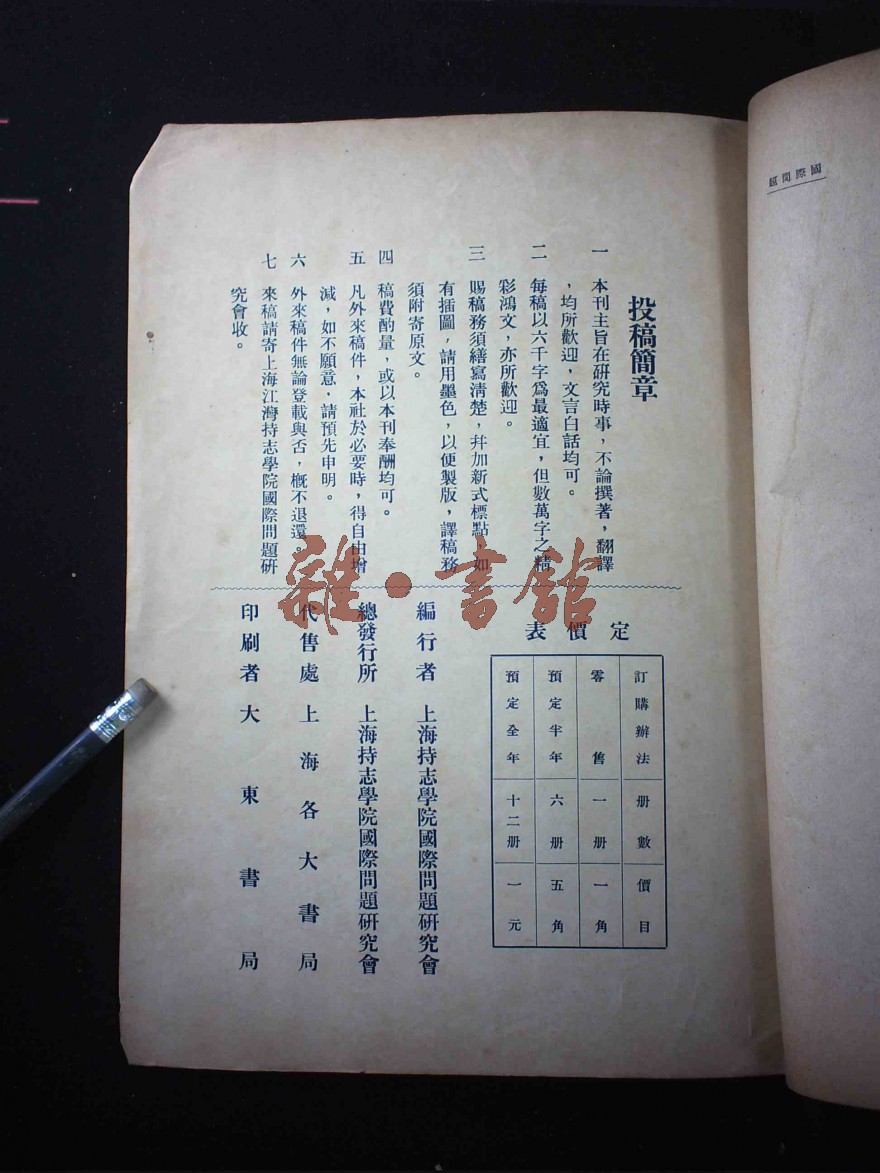 投稿簡章
一 本刊主旨在研究時事，不論撰著，翻譯
，均所歡迎，文言白話均可。
二 每稿以六千字爲最適宜，但數萬字之精
彩鴻文，亦所歡迎。
三 賜稿務須繕寫清楚，幷加新式標點，如
有插圖，請用墨色，以便製版，譯稿務
須附寄原文。
四 稿費酌量，或以本刊奉酬均可。
五 凡外來稿件，本社於必要時，得自由增
減，如不願意，請預先申明。
六 外來稿件無論登載與否，槪不退還。
七 來稿請寄上海江灣持志學院國際問題研
究會收。
定價表
訂購辦法 册數 價目
零售 一册 一角
預定半年 六册 五角
預定全年 十二册 一元
編行者 上海持志學院國際問題研究會
總發行所 上海持志學院國際問題研究會
代售處 上海各大書局
印刷者 大東書局
雜·書館
國際問題